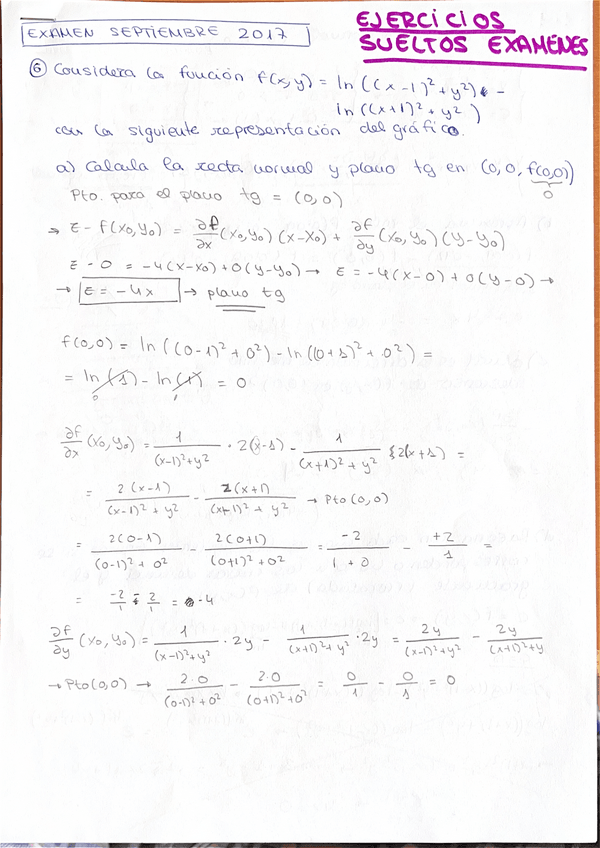 EXAMEN SEPTIEMBRE 2017
EJERCICIOS
SUELTOS EXAMENES
⑥ Considera la función f(x,y) = ln((x-1)²+y²) -
ln((x+1)²+y²)
con la siguiente representación del gráfico.
a) Calcula la recta normal y plano tg en (0,0,f(0,0))
0
Pto. para el plano tg = (0,0)
→ z - f(x₀,y₀) = ∂f/∂x (x₀,y₀)(x-x₀) + ∂f/∂y (x₀,y₀)(y-y₀)
z - 0 = -4(x-x₀)+0(y-y₀) → z = -4(x-0)+0(y-0) →
→ z = -4x → plano tg
f(0,0) = ln((0-1)²+0²)-ln((0+1)²+0²) =
= ln(1) - ln(1) = 0
0
∂f/∂x (x₀,y₀) = 1/((x-1)²+y²) · 2(x-1) - 1/((x+1)²+y²) · 2(x+1) =
= 2(x-1)/((x-1)²+y²) - 2(x+1)/((x+1)²+y²) → Pto(0,0)
= 2(0-1)/((0-1)²+0²) - 2(0+1)/((0+1)²+0²) = -2/(1+0) - +2/1 =
= -2/1 - 2/1 = -4
∂f/∂y (x₀,y₀) = 1/((x-1)²+y²) · 2y - 1/((x+1)²+y²) · 2y = 2y/((x-1)²+y²) - 2y/((x+1)²+y
→ Pto(0,0) → 2·0/((0-1)²+0²) - 2·0/((0+1)²+0²) = 0/1 - 0/1 = 0